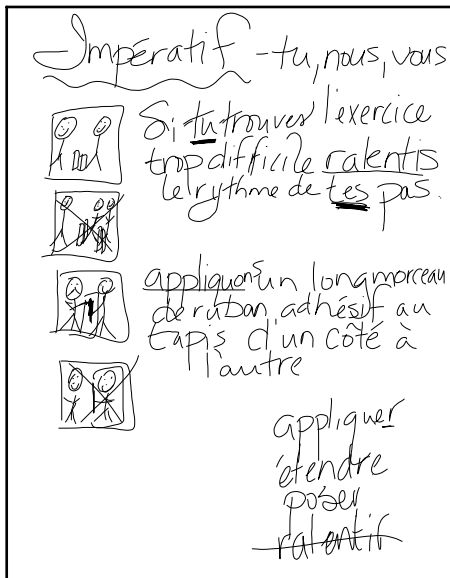 Impératif - tu, nous, vous
Si tu trouves l'exercice
trop difficile ralentis
le rythme de tes pas.
appliquons un long morceau
de ruban adhésif au
tapis d'un côté à
l'autre
appliquer
étendre
poser
ralentir